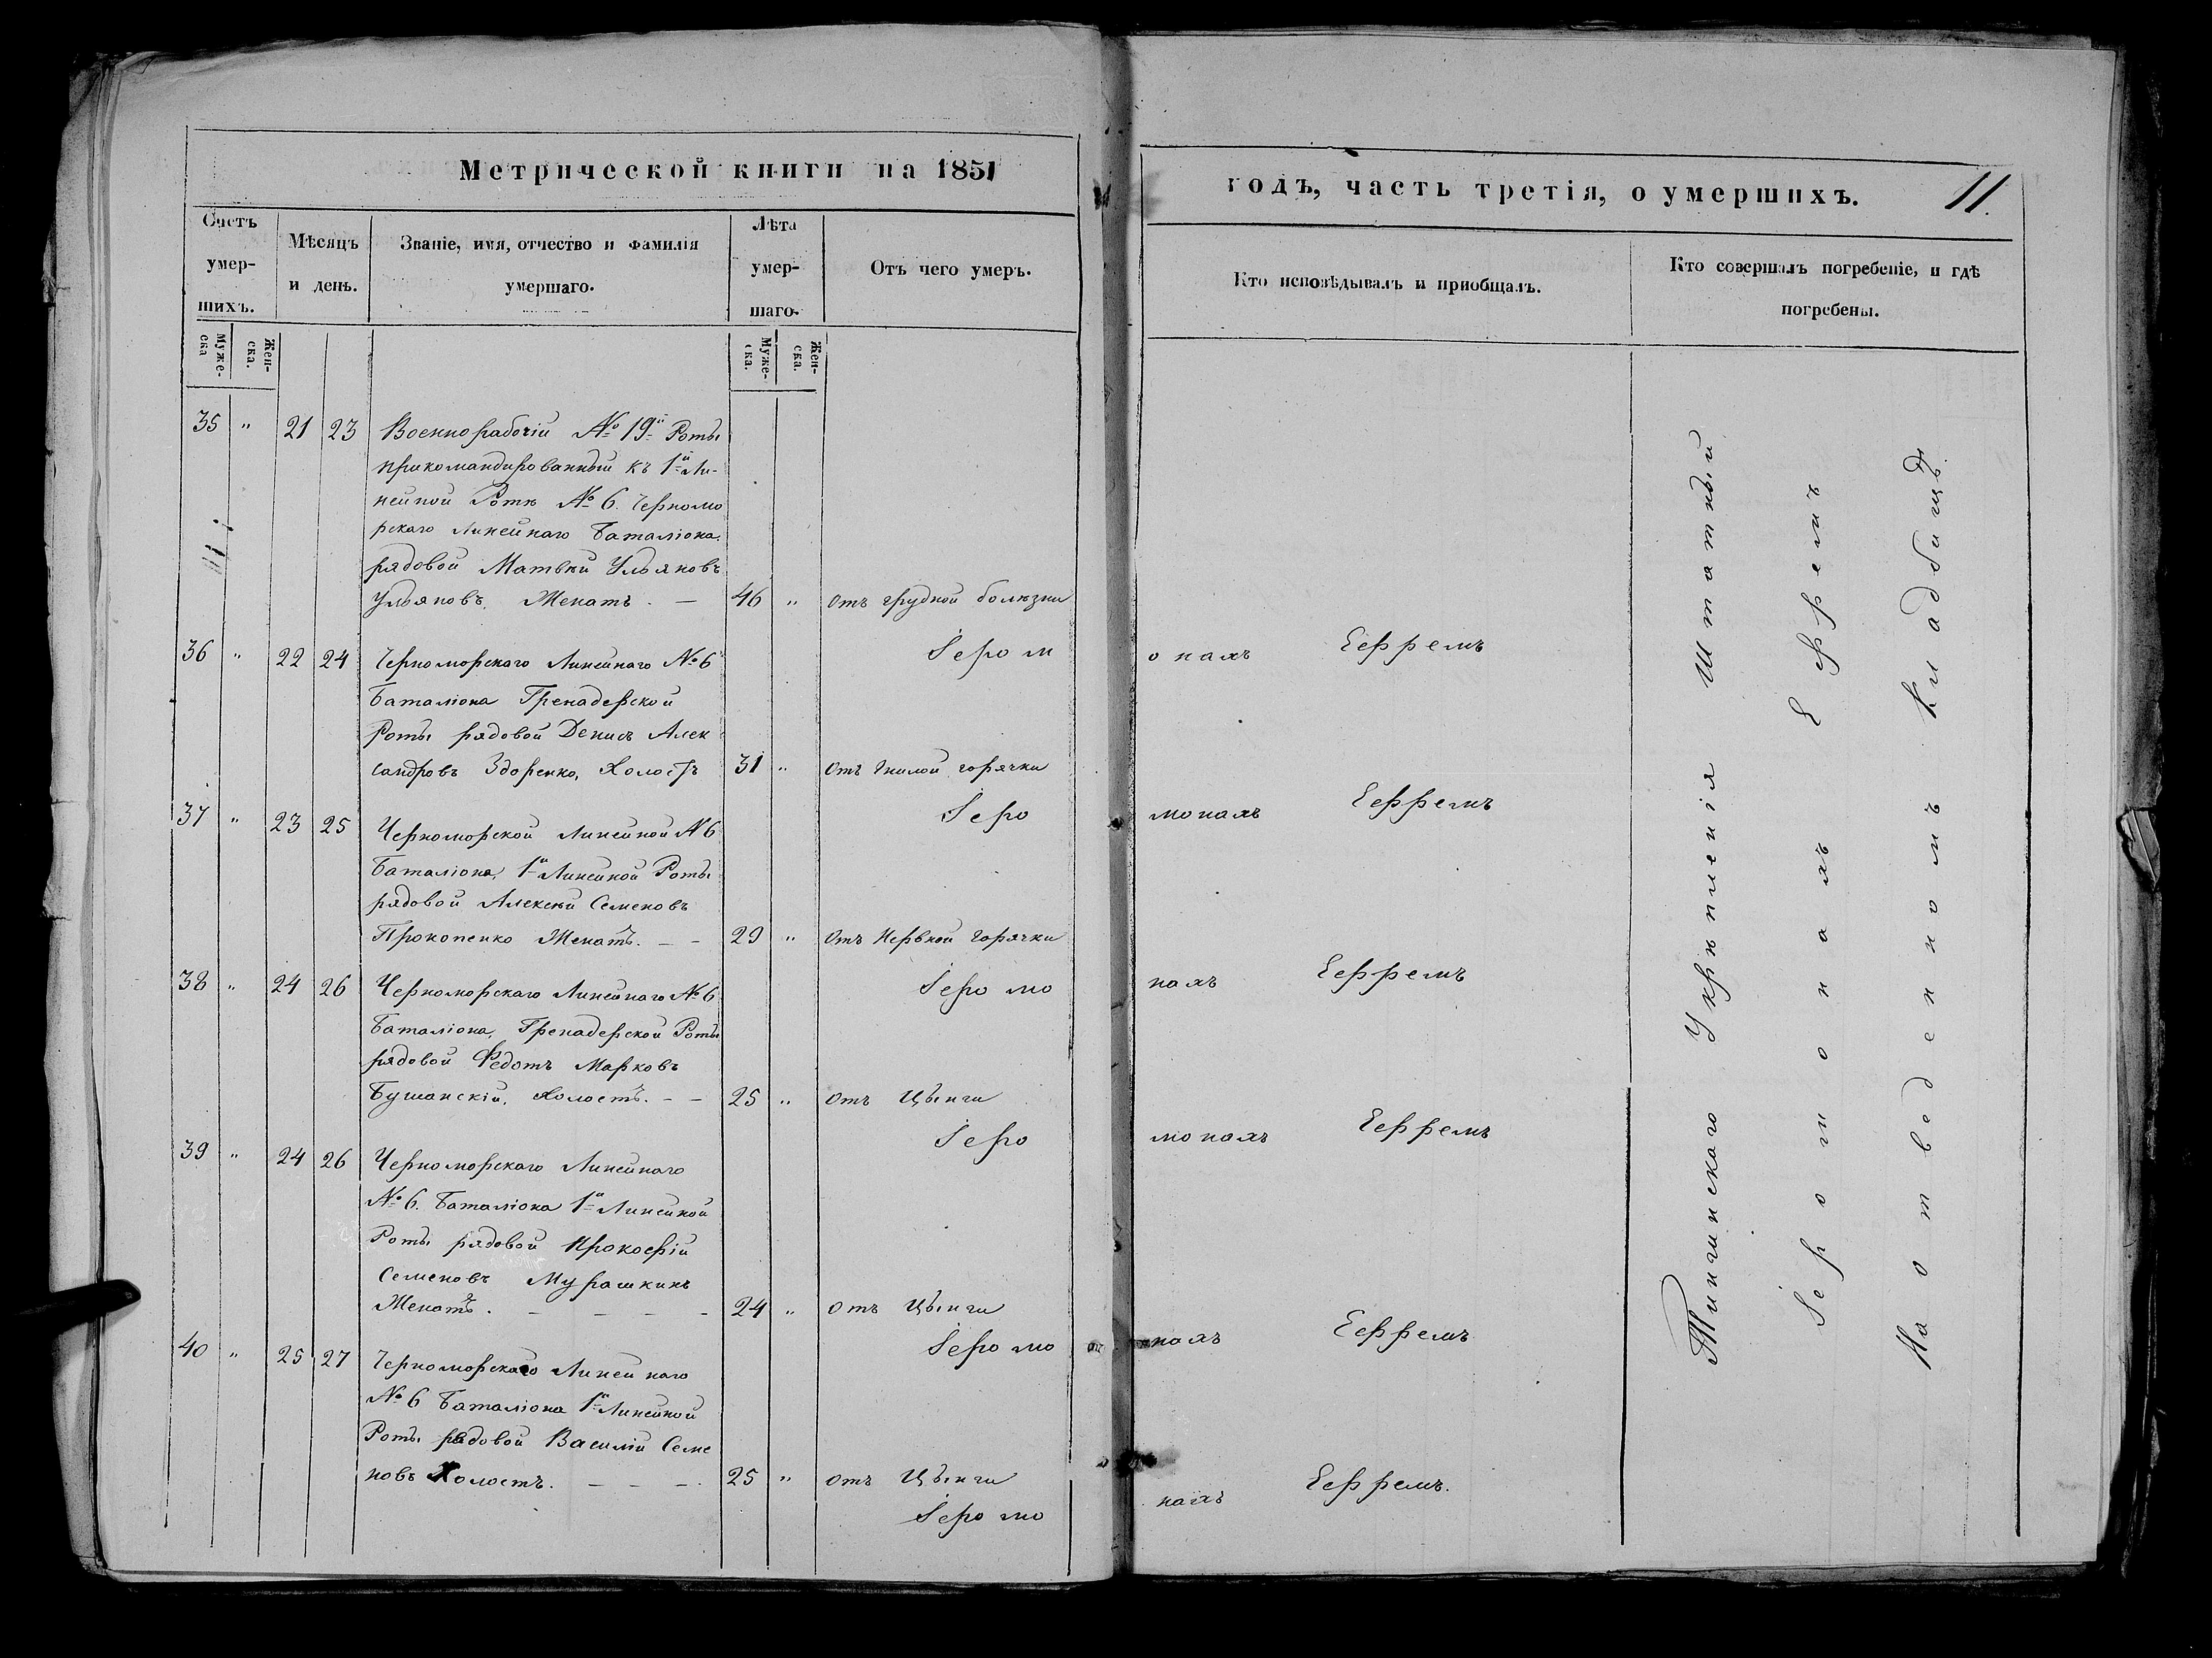 Метрической книги на 1851
годъ, часть третія, о умершихъ. 11.
Счетъ умер-шихъ.
Муже-ска
Жен-ска.
Мѣсяцъ и день.
Званіе, имя, отчество и фамилія умершаго.
Лѣта умер-шаго.
Муже-ска.
Жен-ска.
Отъ чего умеръ.
Кто исповѣдывалъ и приобщалъ.
Кто совершалъ погребеніе, и гдѣ погребены.
35 " 21 23 Военнорабочій № 19й Роты
прикомандированный къ 1й Ли-
нейной Ротѣ № 6. Черномо
рскаго Линейнаго Баталіона.
рядовой Матвѣй Ульяновъ
Ульяновъ. Женатъ. — 46 " отъ грудной болѣзни
Іером онахъ Ефремъ
36 " 22 24 Черноморскаго Линейнаго № 6
Баталіона Гренадерской
Роты рядовой Денисъ Алек
сандровъ Здоренко, Холостъ 31 " Отъ Гнилой горячки
Іеро монахъ Ефремъ
37 " 23 25 Черноморской Линейной № 6
Баталіона, 1й Линейной Роты
рядовой Алексѣй Семеновъ
Прокопенко Женатъ. — - 29 " Отъ Нервной Горячки
Іеро мо нахъ Ефремъ
38 " 24 26 Черноморскаго Линейнаго № 6
Баталіона, Гренадерской Роты
рядовой Федотъ Марковъ
Бушанскій, Холостъ. - - 25 " отъ Цынги
Іеро монахъ Ефремъ
39 " 24 26 Черноморскаго Линейнаго
№ 6. Баталіона 1й Линейной
Роты рядовой Прокофій
Семеновъ Мурашкинъ
Женатъ. - - - - 24 " отъ Цынги
Іеро мо нахъ Ефремъ
40 " 25 27 Черноморскаго Линейнаго
№ 6 Баталіона 1й Линейной
Роты рядовой Василій Семе
новъ Холостъ. - - - 25 " отъ Цынги
Іеро мо нахъ Ефремъ.
Тингинскаго Укрѣпленія Штатный
Іеромонахъ Ефремъ
На отведенномъ кладбищѣ.